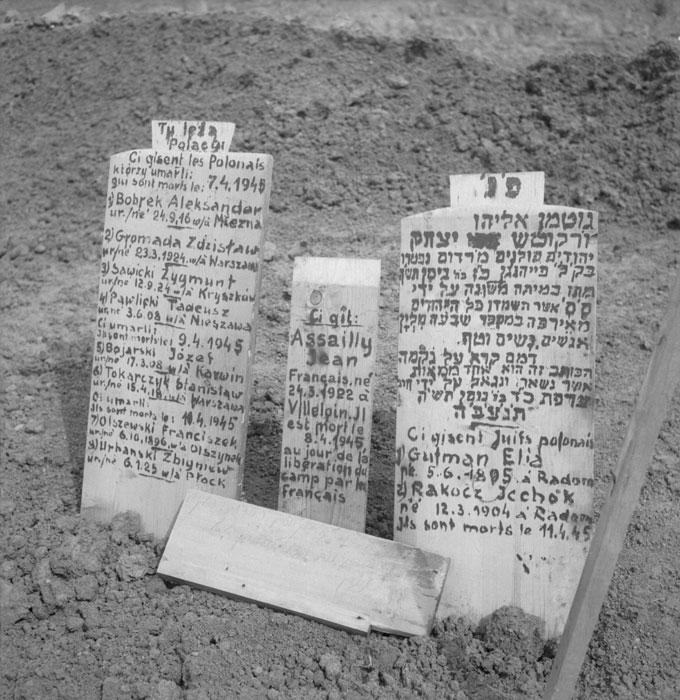 Tu leżą
Polacy
Ci gisent les Polonais
którzy umarli:
qui sont morts le: 7.4.1945
1) Bobrek Aleksander
ur./né 24.9.16 w/à Mrezna
2) Gromada Zdzisław
ur/né 23.3.1924 w/à Warszawa
3) Sawicki Zygmunt
ur/né 12.9.24 w/à Kryszków
4) Pawlicki Tadeusz
ur/né 3.6.08 w/à Nieszawa
Ci umarli: 9.4.1945
Ils sont morts le:
5) Bojarski Józef
ur/né 17.3.08 w/à Karwin
6) Tokarczyk Stanisław
ur/né w/à Warszawa
Ci umarli: 10.4.1945
Ils sont morts le:
7) Olszewski Franciszek
ur/né 6.10.1896 w/à Olszynek
8) Urbański Zbigniew
ur/né 6.1.25 w/à Płock
Ci gît:
Assailly
Jean
Français, né
24.3.1922 à
Villelpin. Il
est mort le
8.4.1945
au jour de la
libération du
camp par les
français
פ"נ
גוטמן אליהו
ורקוטש יצחק
יהודים פולנים מרדום נפטרו
כ"ז ניסן תש"ה
מתו במיתה משונה על ידי
ס"ס אשר השמדו כל היהודים
מאירפה במספר שבעה מליון
אנשים, נשים וטף.
דמם קרא על נקמה
הכותב זה הוא אחד ממאות
אשר נשאר, ונגאל על ידי
צרפת כ"ז ניסן תש"ה
תנצבה
Ci gisent Juifs polonais
1) Gutman Elia
né 5.6.1895 à Radom
2) Rakocz Icchok
né 12.3.1904 à Radom
Ils sont morts le 11.4.45